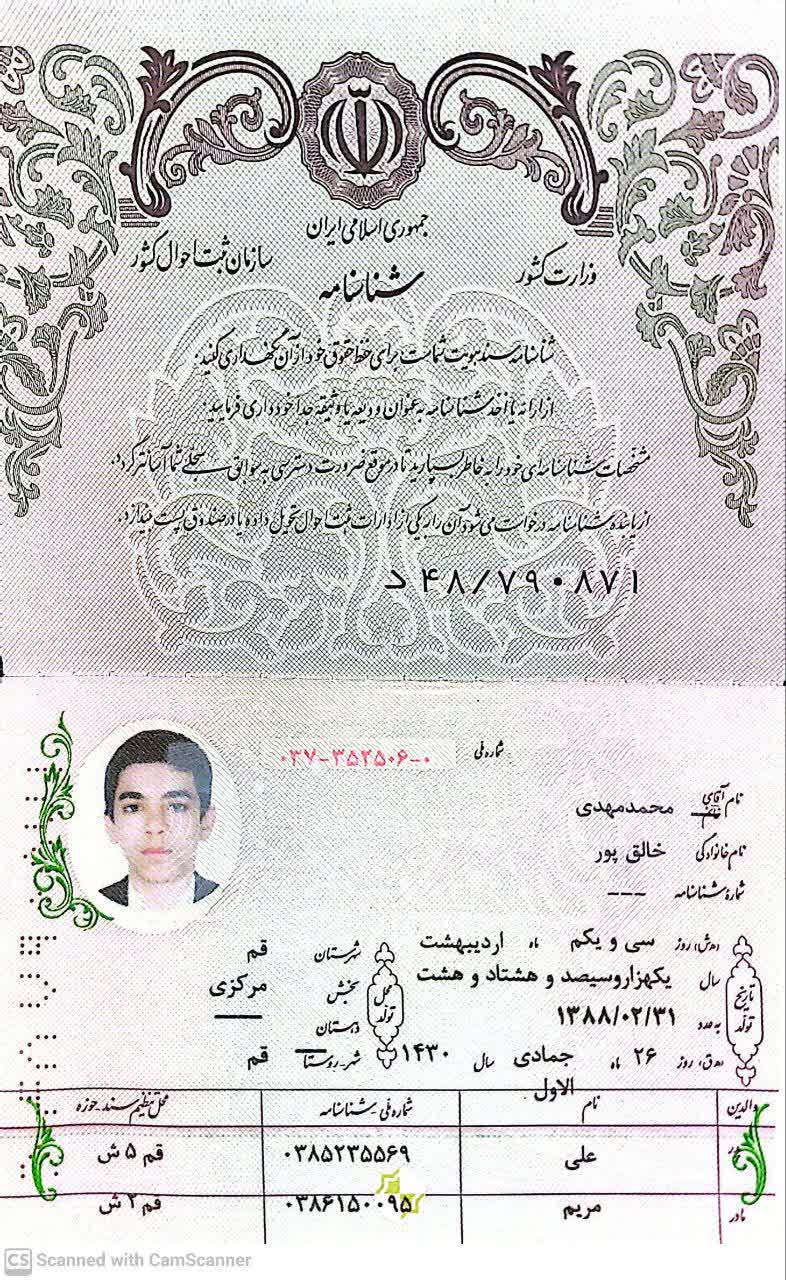 جمهوری اسلامی ایران
وزارت کشور
سازمان ثبت احوال کشور
شناسنامه
شناسنامه سند هویت شماست برای حفظ حقوق خود از آن نگهداری کنید.
از ارائه یا اخذ شناسنامه به عنوان ودیعه یا وثیقه جدا خودداری فرمایید.
مشخصات شناسنامه‌ای خود را به خاطر بسپارید تا در موقع ضرورت دسترسی به سوابق سجلی شما آسانتر گردد.
از یابنده شناسنامه درخواست می‌شود آن را به یکی از ادارات ثبت احوال تحویل داده یا در صندوق پست بیندازد.
د۴۸/۷۹۰۸۷۱
شماره ملی ۰۳۷-۳۵۲۵۰۶-۰
نام آقای خانم محمدمهدی
نام خانوادگی خالق پور
شماره شناسنامه ---
تاریخ تولد
(ه‍.ش) روز سی و یکم ماه اردیبهشت
سال یکهزاروسیصد و هشتاد و هشت
به عدد ۱۳۸۸/۰۲/۳۱
(ه‍.ق) روز ۲۶ ماه جمادی الاول سال ۱۴۳۰
محل تولد
شهرستان قم
بخش مرکزی
دهستان ——
شهر-روستا قم
والدین نام شماره ملی-شناسنامه محل تنظیم سند-حوزه
پدر علی ۰۳۸۵۲۳۵۵۶۹ قم ۵ ش
مادر مریم ۰۳۸۶۱۵۰۰۹۵ قم ۲ ش
CS Scanned with CamScanner